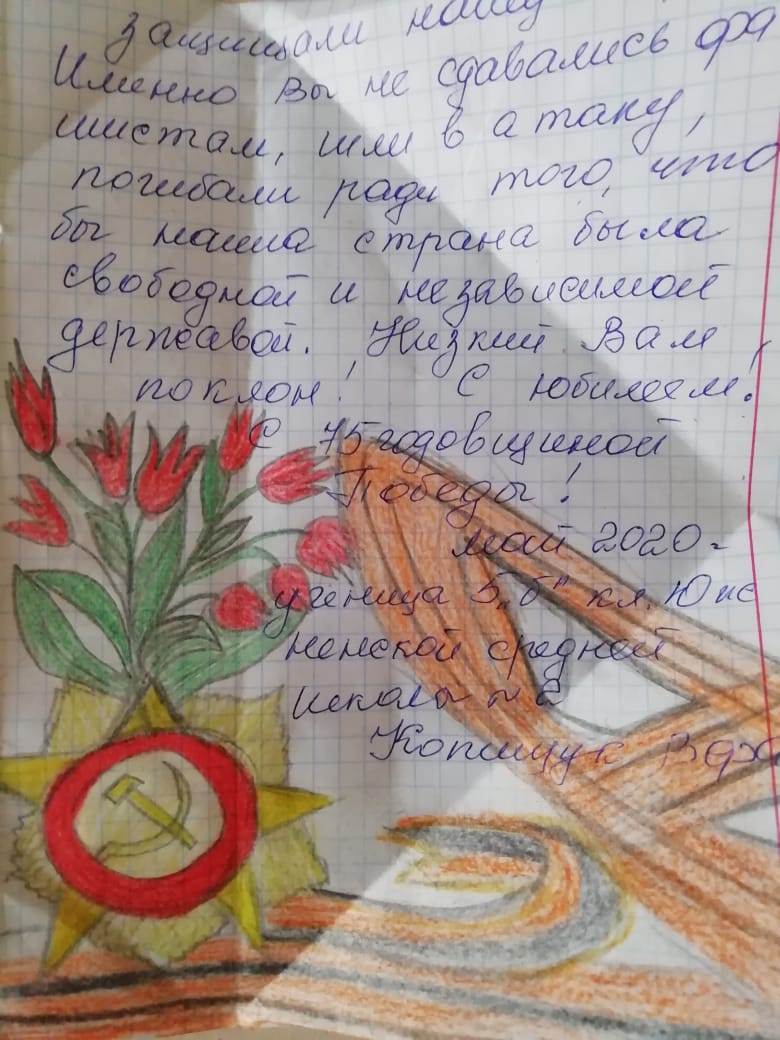 защищали нашу
Именно Вы не сдавались фа
шистам, шли в атаку,
погибали ради того, что
бы наша страна была
свободной и независимой
державой. Низкий Вам
поклон! С юбилеем!
С 75 годовщиной
Победы!
май 2020г
ученица 5 „б" кл. Юнс
ненской средней
школы №2